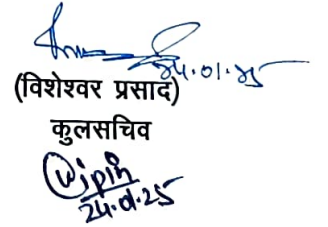 24.01.25
(विशेश्वर प्रसाद)
कुलसचिव
24.01.25